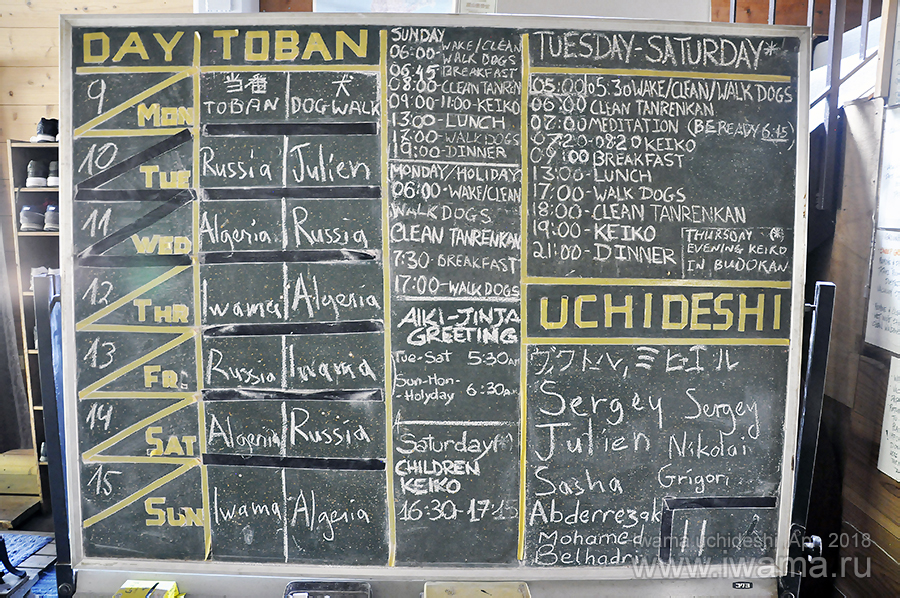 DAY TOBAN
9 MON 当番 TOBAN 犬 DOGWALK
10 TUE Russia Julien
11 WED Algeria Russia
12 THR Iwama Algeria
13 FR. Russia Iwama
14 SAT Algeria Russia
15 SUN Iwama Algeria
SUNDAY
06:00-WAKE/CLEAN
WALK DOGS
06:45 BREAKFAST
08:00-CLEAN TANREN
09:00-11:00-KEIKO
13:00-LUNCH
17:00-WALK DOGS
19:00-DINNER
MONDAY/HOLIDAY
06:00-WAKE/CLEAN
WALK DOGS
CLEAN TANRENKAN
7:30-BREAKFAST
17:00-WALK DOGS
AIKI-JINJA
GREETING
Tue-Sat 5:30AM
Sun-Mon-
Holyday 6:30AM
Saturday(*)
CHILDREN
KEIKO
16:30-17:15
TUESDAY-SATURDAY*
05:00/05:30 WAKE/CLEAN/WALK DOGS
06:00 CLEAN TANRENKAN
07:00 MEDITATION (BE READY 6:45)
07:20-0820 KEIKO
09:00 BREAKFAST
13:00-LUNCH
17:00-WALK DOGS
18:00-CLEAN TANRENKAN
19:00-KEIKO
21:00-DINNER
THURSDAY *
EVENING KEIKO
IN BUDOKAN
UCHIDESHI
ヴィクトル, ミヒエル
Sergey Sergey
Julien Nikolai
Sasha Grigori
Abderrezak
Mohamed
Belhadri
11
iwama uchideshi, Apr 2018
www.iwama.ru